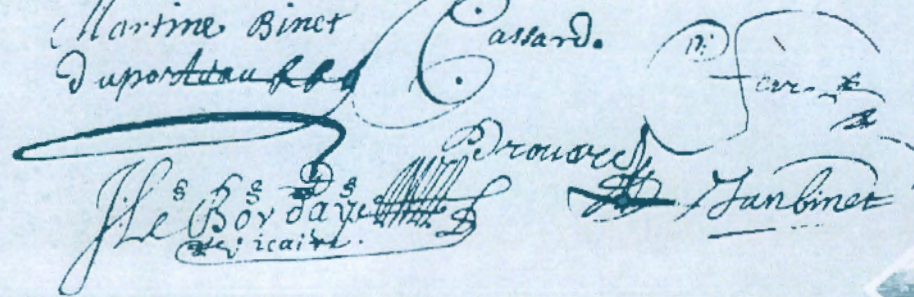 Martine Binet
Cassard.
duportdau
Brouard
J. Le Bordays
vicaire.
Janbinet